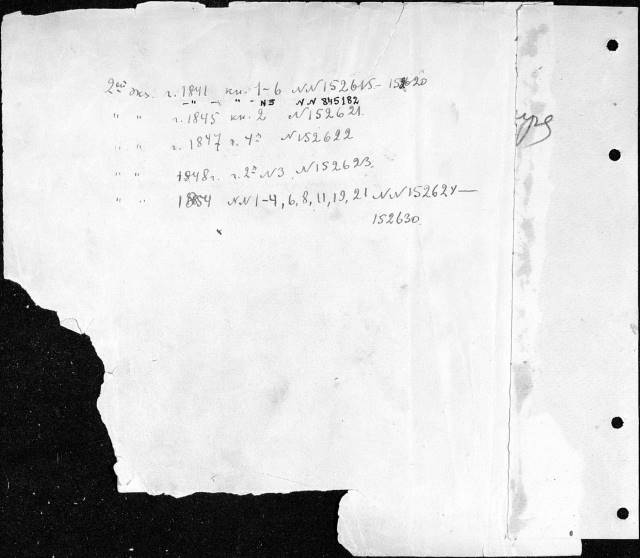 2ой экз. г. 1841 кн. 1-6 NN 152615-152620
-"- " " - N3 NN 845182
" " г. 1845 кн. 2 N 152621
" " г. 1847 г. 4й N 152622
" " 1848 г. г. 2й N3 N 152623
" " 1854 NN 1-4, 6, 8, 11, 19, 21 NN 152624-
152630